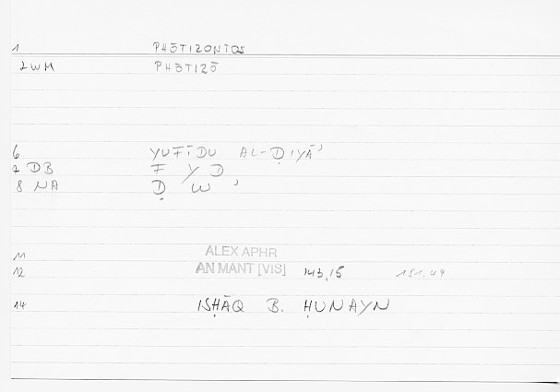 1 PHŌTIZONTOS
2WM PHŌTIZŌ
6 YUFĪDU AL-ḌIYĀʾ
2 DB F Y Ḍ
8 NA Ḍ W ʾ
11 ALEX APHR
12 AN MANT [VIS] 143,15 151.49
14 ISḤĀQ B. ḤUNAYN